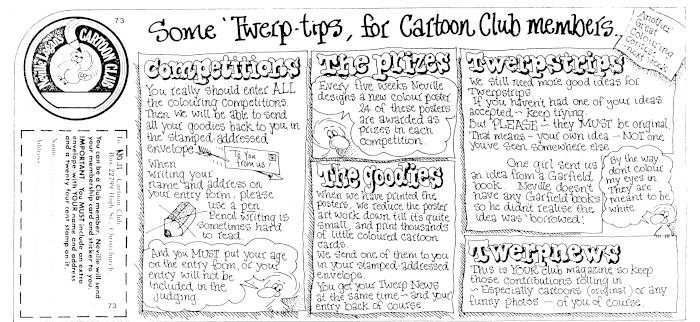 73
CARTOON CLUB
Some 'Twerp-tips, for Cartoon Club members.
Another
Great
Colouring
Contest
Next Week
Competitions
You really should enter ALL
the colouring competitions.
Then we will be able to send
all your goodies back to you in
the stamped addressed
envelope
To You
from us!
When
writing your
name and address on
your entry form, please
use a pen.
Pencil writing is
sometimes hard
to read.
And you MUST put your age
on the entry form, or your
entry will not be
included in the
judging
The Prizes
Every five weeks Neville
designs a new colour poster
24 of these posters
are awarded as
prizes in each
competition.
The Goodies
When we have printed the
posters, we reduce the poster
art work down till it's quite
small, and print thousands
of little coloured cartoon
cards.
We send one of them to you
in your stamped addressed
envelope.
You get your Twerp News
at the same time - and your
entry back of course.
Twerpstrips
We still need more good ideas for
Twerpstrips
If you haven't had one of your ideas
accepted - keep trying.
But PLEASE - they MUST be original.
That means - your own idea - NOT one
you've seen somewhere else.
One girl sent us
an idea from a Garfield
book. Neville doesn't
have any Garfield books
so he didn't realise the
idea was 'borrowed'.
By the way
don't colour
my eyes in
They are
meant to be
white
Twerpnews
This is YOUR club magazine so keep
those contributions rolling in
- Especially cartoons (original) or any
funny photos - of you of course.
Cartoon Club
Christchurch
You can be a club member. Neville will send
your membership card and sticker to you.
IMPORTANT: You MUST include an extra
envelope with YOUR name and address
and a twenty four cent stamp on it.
Name
Address
73